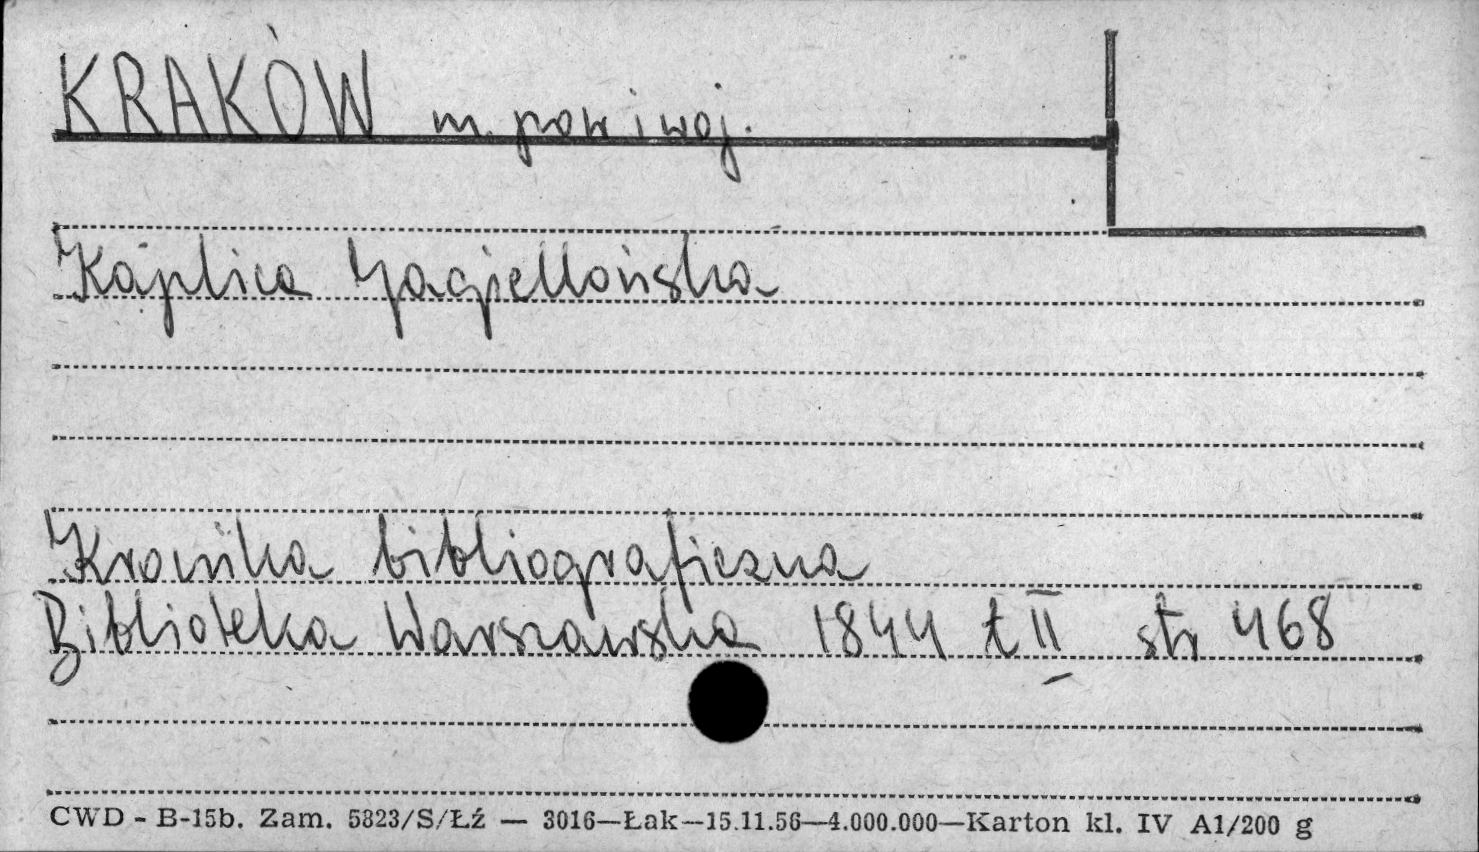 KRAKÓW m. pow i woj.
Kaplica Jagiellońska
Kronika bibliograficzna
Biblioteka Warszawska 1844 t II str 468
CWD - B-15b. Zam. 5823/S/Łź — 3016—Łak—15.11.56—4.000.000—Karton kl. IV A1/200 g